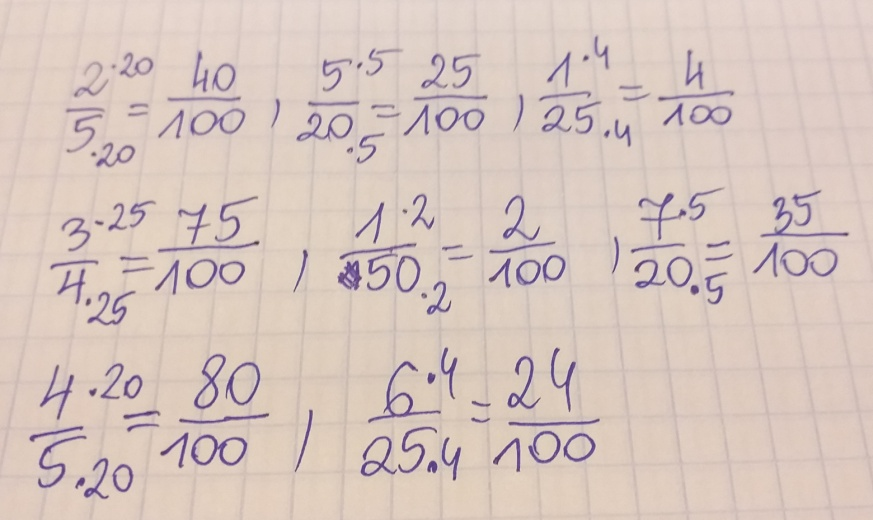 2·20/5·20 = 40/100 , 5·5/20·5 = 25/100 , 1·4/25·4 = 4/100
3·25/4·25 = 75/100 , 1·2/50·2 = 2/100 , 7·5/20·5 = 35/100
4·20/5·20 = 80/100 , 6·4/25·4 = 24/100